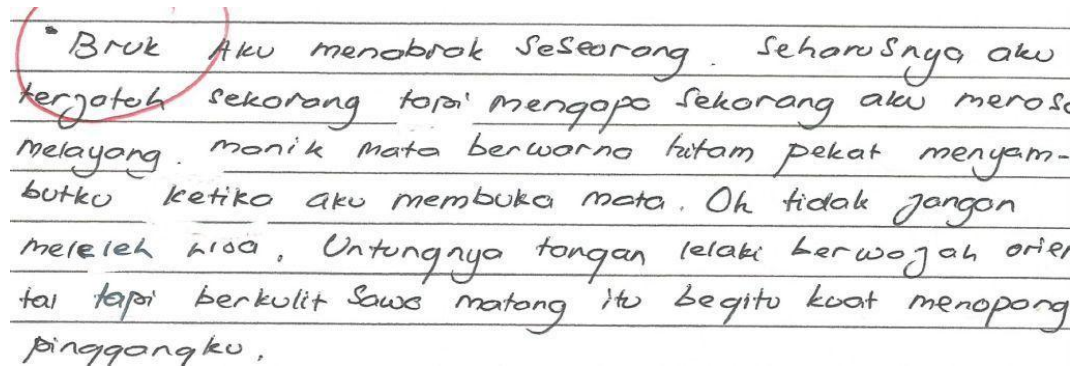 "Bruk Aku menabrak seseorang. Seharusnya aku
terjatoh sekarang tapi mengapa sekarang aku merasa
melayang. manik mata berwarna hitam pekat menyam-
butku ketika aku membuka mata. Oh tidak jangan
meleleh. Untungnya tangan lelaki berwajah orien
tal tapi berkulit sawo matang itu begitu kuat menopang
pinggangku.